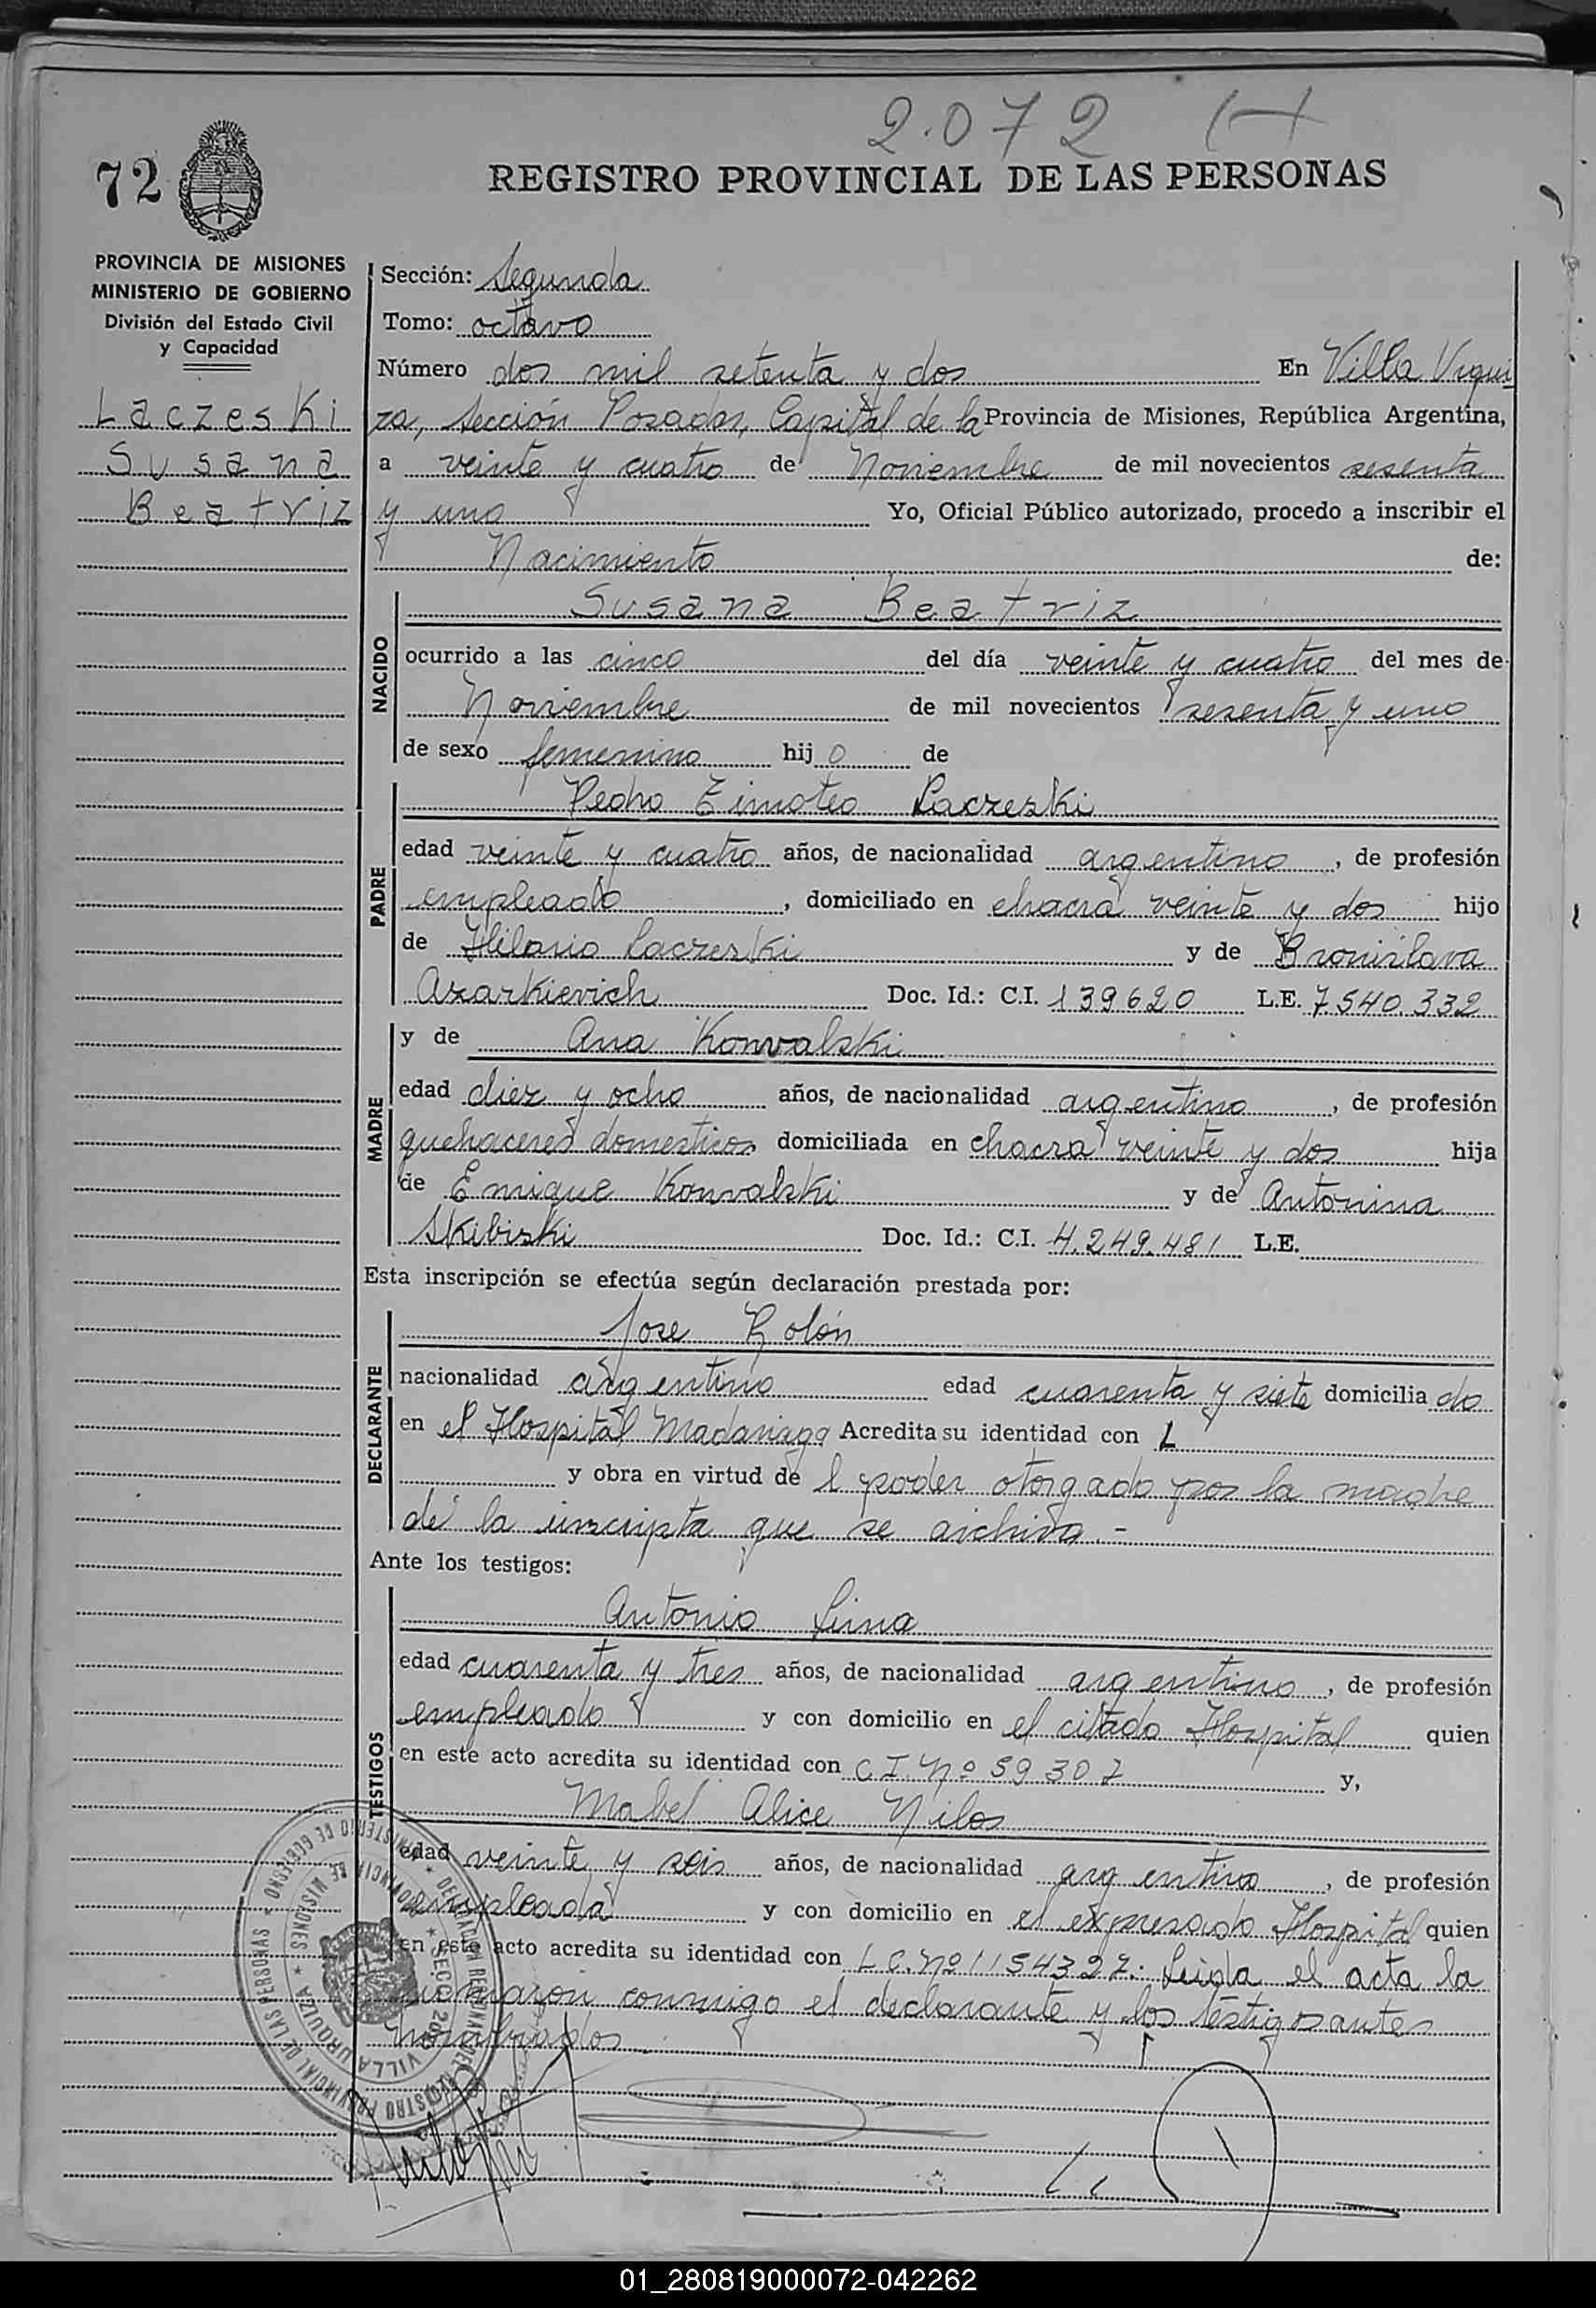 2.072
72
REGISTRO PROVINCIAL DE LAS PERSONAS
PROVINCIA DE MISIONES
MINISTERIO DE GOBIERNO
División del Estado Civil
y Capacidad
Laczeski
Susana
Beatriz
Sección: Segunda
Tomo: octavo
Número dos mil setenta y dos En Villa Urqui
za, sección Posadas, Capital de la Provincia de Misiones, República Argentina,
a veinte y cuatro de Noviembre de mil novecientos sesenta
y uno Yo, Oficial Público autorizado, procedo a inscribir el
Nacimiento de:
NACIDO
Susana Beatriz
ocurrido a las cinco del día veinte y cuatro del mes de
Noviembre de mil novecientos sesenta y uno
de sexo femenino hijo de
PADRE
Pedro Timoteo Laczeski
edad veinte y cuatro años, de nacionalidad argentino, de profesión
empleado, domiciliado en chacra veinte y dos hijo
de Hilario Laczeski y de Bronislava
Azarkievich Doc. Id.: C.I. 139620 L.E. 7.540.332
MADRE
y de Ana Konvalski
edad diez y ocho años, de nacionalidad argentino, de profesión
quehaceres domesticos domiciliada en chacra veinte y dos hija
de Enrique Konvalski y de Antonina
Skibiski Doc. Id.: C.I. 4.249.481 L.E.
Esta inscripción se efectúa según declaración prestada por:
DECLARANTE
Jose Rolón
nacionalidad argentino edad cuarenta y siete domiciliado
en el Hospital Madariaga Acredita su identidad con
y obra en virtud del poder otorgado por la madre
de la inscripta que se archiva.-
Ante los testigos:
TESTIGOS
Antonio Lima
edad cuarenta y tres años, de nacionalidad argentino, de profesión
empleado y con domicilio en el citado Hospital quien
en este acto acredita su identidad con C I Nº 59307 y,
Mabel Alice Nilos
edad veinte y seis años, de nacionalidad argentina, de profesión
empleada y con domicilio en el expresado Hospital quien
en este acto acredita su identidad con L C. Nº 1154327. Leida el acta la
firmaron conmigo el declarante y los testigos antes
nombrados.
MINISTERIO DE GOBIERNO
PROVINCIA DE MISIONES
REGISTRO PROVINCIAL DE LAS PERSONAS
VILLA URQUIZA
01_280819000072-042262